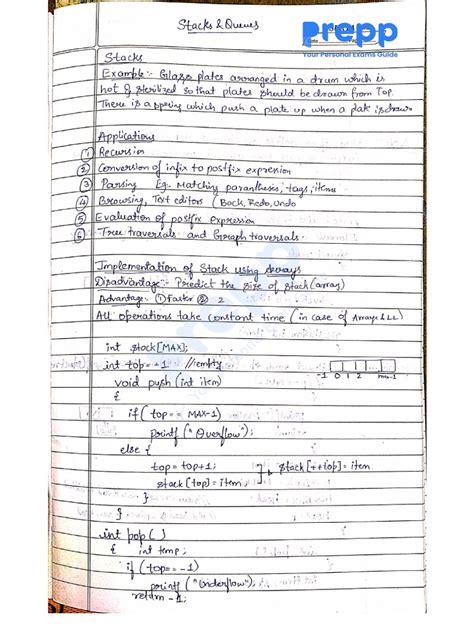 Stacks & Queues
prepp
Your Personal Exams Guide
Stacks
Example:- Glass plates arranged in a drum which is
hot & sterilized so that plates should be drawn from Top.
There is a spring which push a plate up when a plate is drawn
Applications
① Recursion
② Conversion of infix to postfix expression
③ Parsing Eg. Matching paranthesis, tags, items
④ Browsing, Text editors (Back, Redo, Undo
⑤ Evaluation of postfix Expression
⑥ Tree traversals and Graph traversals.
Implementation of Stack using Arrays
Disadvantage:- Predict the size of stack (array)
Advantage: ① Faster ② 2
All operations take constant time (in case of Array & LL)
int stack[MAX];
int top = -1 //empty
-1 0 1 2 max-1
void push (int item)
{
if (top == MAX-1)
printf ("Overflow");
else {
top = top+1;
stack [top] = item;
stack [++top] = item
}
}
int pop ( )
{ int temp;
if (top == -1)
printf ("Underflow");
return -1;